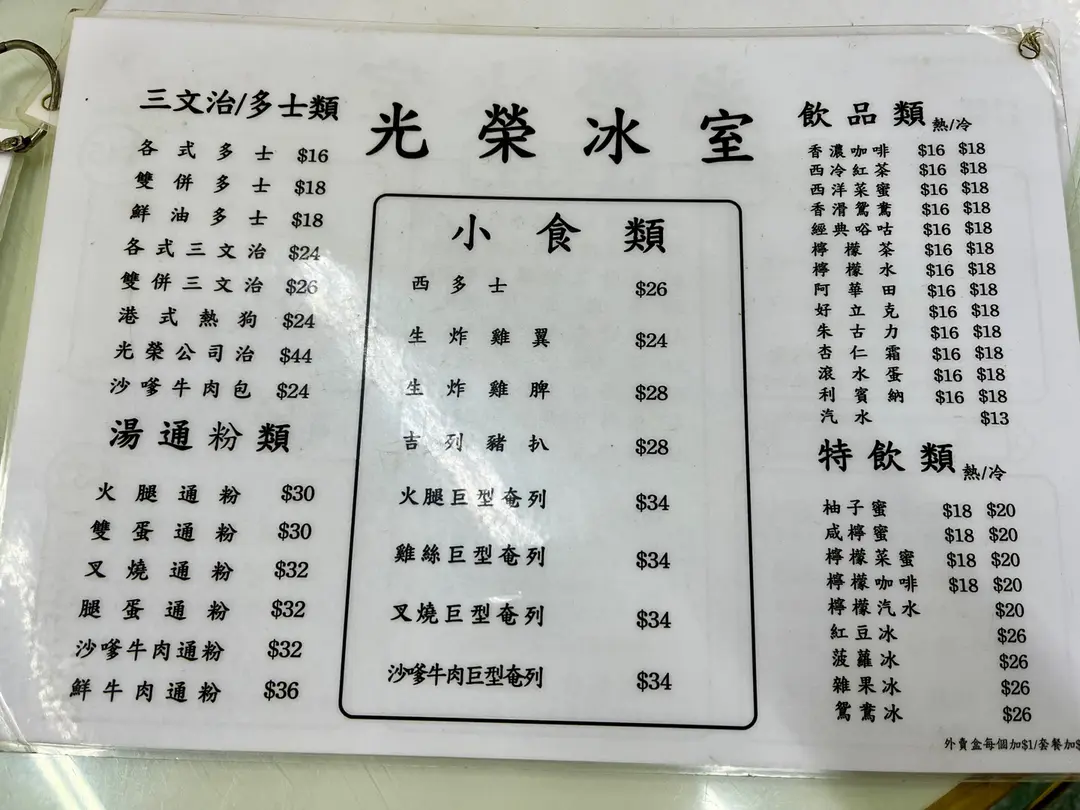 光榮冰室
三文治/多士類
各式多士 $16
雙併多士 $18
鮮油多士 $18
各式三文治 $24
雙併三文治 $26
港式熱狗 $24
光榮公司治 $44
沙嗲牛肉包 $24
湯通粉類
火腿通粉 $30
雙蛋通粉 $30
叉燒通粉 $32
腿蛋通粉 $32
沙嗲牛肉通粉 $32
鮮牛肉通粉 $36
小食類
西多士 $26
生炸雞翼 $24
生炸雞脾 $28
吉列豬扒 $28
火腿巨型奄列 $34
雞絲巨型奄列 $34
叉燒巨型奄列 $34
沙嗲牛肉巨型奄列 $34
飲品類 熱/冷
香濃咖啡 $16 $18
西冷紅茶 $16 $18
西洋菜蜜 $16 $18
香滑鴛鴦 $16 $18
經典唂咕 $16 $18
檸檬茶 $16 $18
檸檬水 $16 $18
阿華田 $16 $18
好立克 $16 $18
朱古力 $16 $18
杏仁霜 $16 $18
滾水蛋 $16 $18
利賓納 $16 $18
汽水 $13
特飲類 熱/冷
柚子蜜 $18 $20
咸檸蜜 $18 $20
檸檬菜蜜 $18 $20
檸檬咖啡 $18 $20
檸檬汽水 $20
紅豆冰 $26
菠蘿冰 $26
雜果冰 $26
鴛鴦冰 $26
外賣盒每個加$1/套餐加